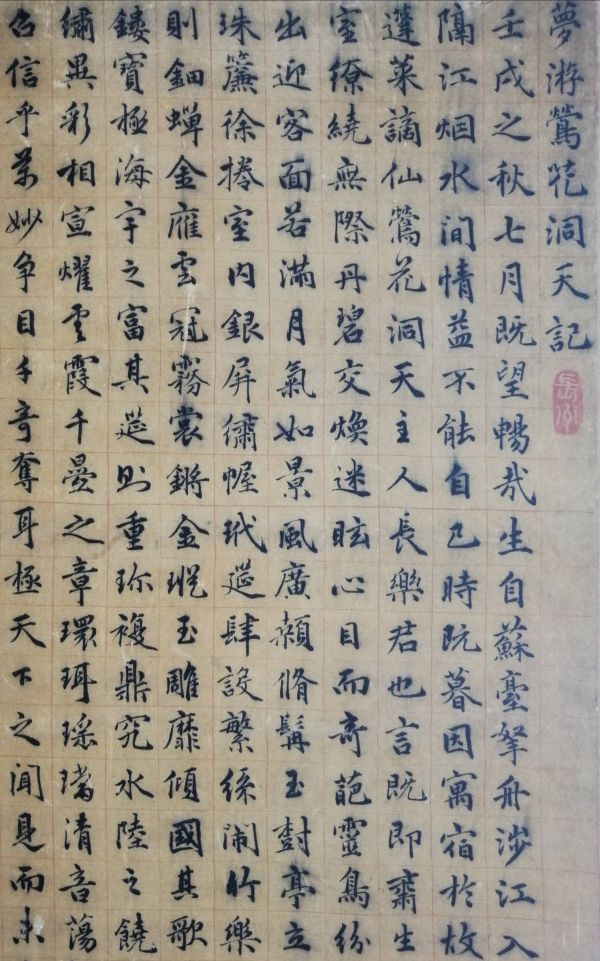 夢游鶯花洞天記
壬戌之秋七月既望暢哉生自蘇臺拏舟涉江入
隔江烟水间情益不能自已時既暮因寓宿於故
蓬莱謫仙鶯花洞天主人長樂君也言既即齋生
室繚繞無際丹碧交焕迷眩心目而奇葩靈鳥纷
出迎客面若满月氣如景風廣顙脩髯玉樹亭立
珠簾徐捲室内銀屏繡幄玳筵肆設繁絲闹竹樂
則鈿蟬金雁雲冠霧裳鏘金瑽玉雕靡傾國其歌
鏤寶極海宇之富其筵则重珍複鼎究水陸之饒
繡異彩相宣燿雲霞千疊之章環珥瑶璫清音蕩
召信乎萬妙争目千奇奪耳極天下之闻見而未